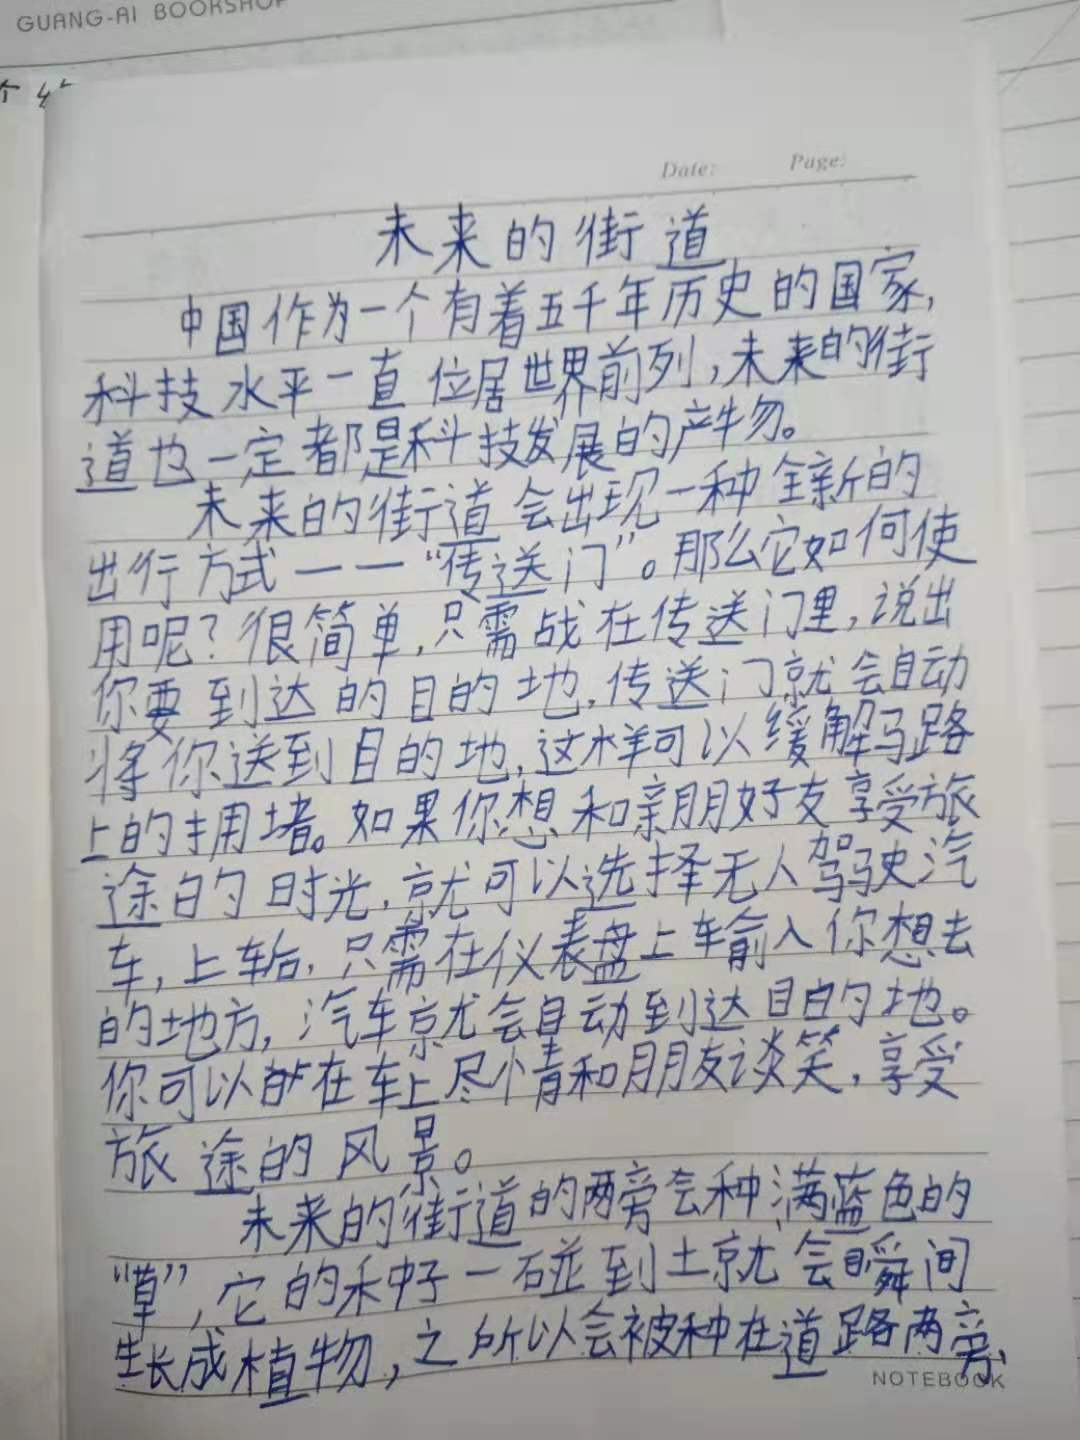 GUANG-AI BOOKSHOP
Date: Page:
未来的街道
中国作为一个有着五千年历史的国家,
科技水平一直位居世界前列,未来的街
道也一定都是科技发展的产物。
未来的街道会出现一种全新的
出行方式——“传送门”。那么它如何使
用呢?很简单,只需战在传送门里,说出
你要到达的目的地,传送门就会自动
将你送到目的地,这样可以缓解马路
上的拥堵。如果你想和亲朋好友享受旅
途的时光,就可以选择无人驾驶汽
车,上车后,只需在仪表盘上输入你想去
的地方,汽车就会自动到达目的地。
你可以在车上尽情和朋友谈笑,享受
旅途的风景。
未来的街道的两旁会种满蓝色的
“草”,它的种子一碰到土就会瞬间
生长成植物,之所以会被种在道路两旁,
NOTEBOOK